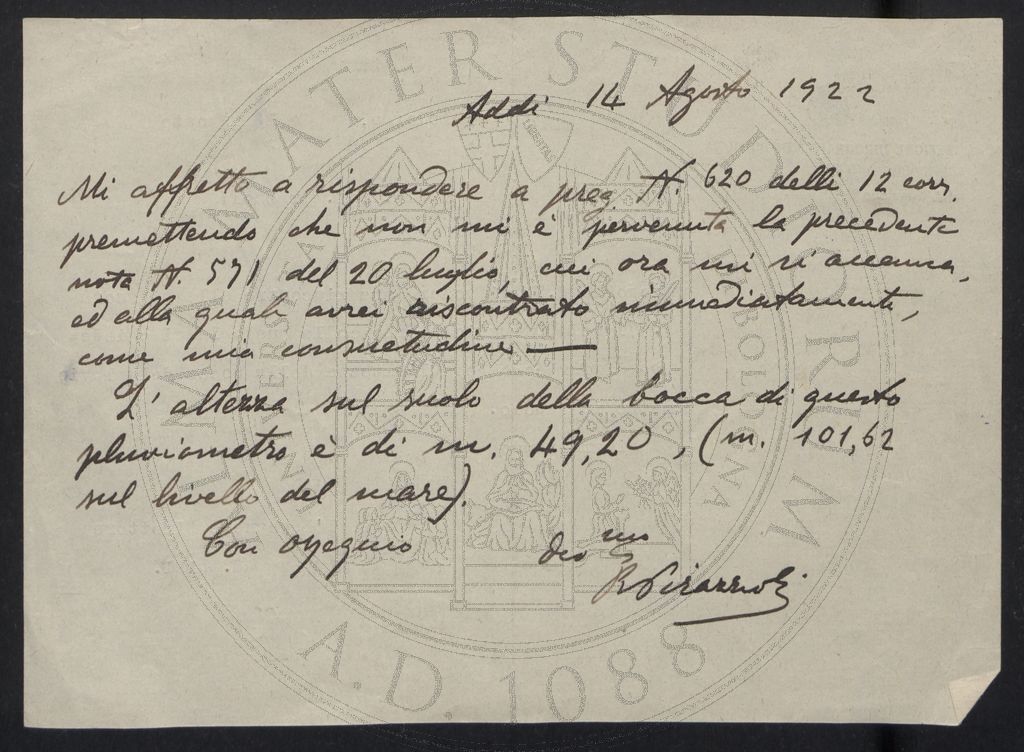 Addì 14 Agosto 1922
Mi affretto a rispondere a preg. N. 620 delli 12 corr.
premettendo che non mi è pervenuta la precedente
nota N. 571 del 20 luglio, cui ora mi si accenna,
ed alla quale avrei riscontrato immediatamente,
come mia consuetudine —
L' altezza sul suolo della bocca di questo
pluviometro è di m. 49,20, (m. 101,62
sul livello del mare).
Con ossequio devmo
R Pirazzoli
ALMA MATER STUDIORUM
A.D. 1088
LIBERTAS
BOLOGNA